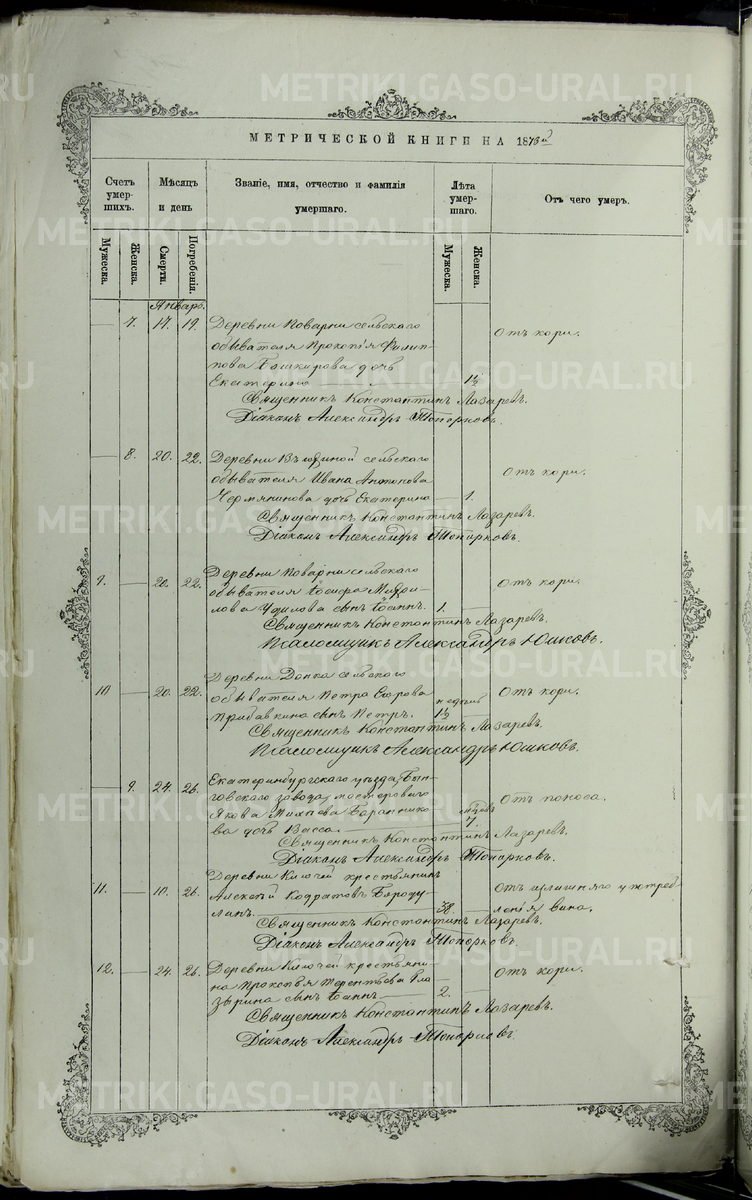 METRIKI.GASO-URAL.RU
МЕТРИЧЕСКОЙ КНИГИ НА 1873й
Счетъ умер-шихъ.
Мѣсяцъ и день
Званіе, имя, отчество и фамилія умершаго.
Лѣта умер-шаго.
Отъ чего умеръ.
Мужеска.
Женска.
Смерти.
Погребенія.
Мужеска.
Женска.
Январь.
— 7. 17. 19. Деревни Поварни сельскаго
обывателя Прокопія Филип-
пова Башкирова дочь
Екатерина — 1½ Отъ кори.
Священникъ Константинъ Лазаревъ.
Діаконъ Александръ Топорковъ.
— 8. 20. 22. Деревни сельскаго
обывателя Ивана Антонова
Чермянинова дочь Екатерина — 1. Отъ кори.
Священникъ Константинъ Лазаревъ.
Діаконъ Александръ Топорковъ.
9. — 20. 22. Деревни Поварни сельскаго
обывателя
лова сынъ Іоаннъ. 1. — Отъ кори.
Священникъ Константинъ Лазаревъ.
Псаломщикъ Александръ Юшковъ.
10 — 20. 22. Деревни сельскаго
обывателя Петра Егорова
Прибавкина сынъ Петръ. 1½ — Отъ кори.
Священникъ Константинъ Лазаревъ.
Псаломщикъ Александръ Юшковъ.
— 9. 24. 26. Екатеринбургскаго уѣзда Бын-
говскаго завода мастероваго
Якова Бараннико-
ва дочь Васса. — 7. Отъ поноса.
Священникъ Константинъ Лазаревъ.
Діаконъ Александръ Топорковъ.
11. — 10. 26. Деревни Ключей крестьянинъ
Алексѣй Кодратовъ Бороду-
линъ. 38. — Отъ излишняго употреб
ленія вина.
Священникъ Константинъ Лазаревъ.
Діаконъ Александръ Топорковъ.
12. — 24. 26. Деревни Ключей крестьяни-
на Прокопья Терентьева Гла-
зырина сынъ Іоаннъ — 2. — Отъ кори.
Священникъ Константинъ Лазаревъ.
Діаконъ Александръ Топорковъ.